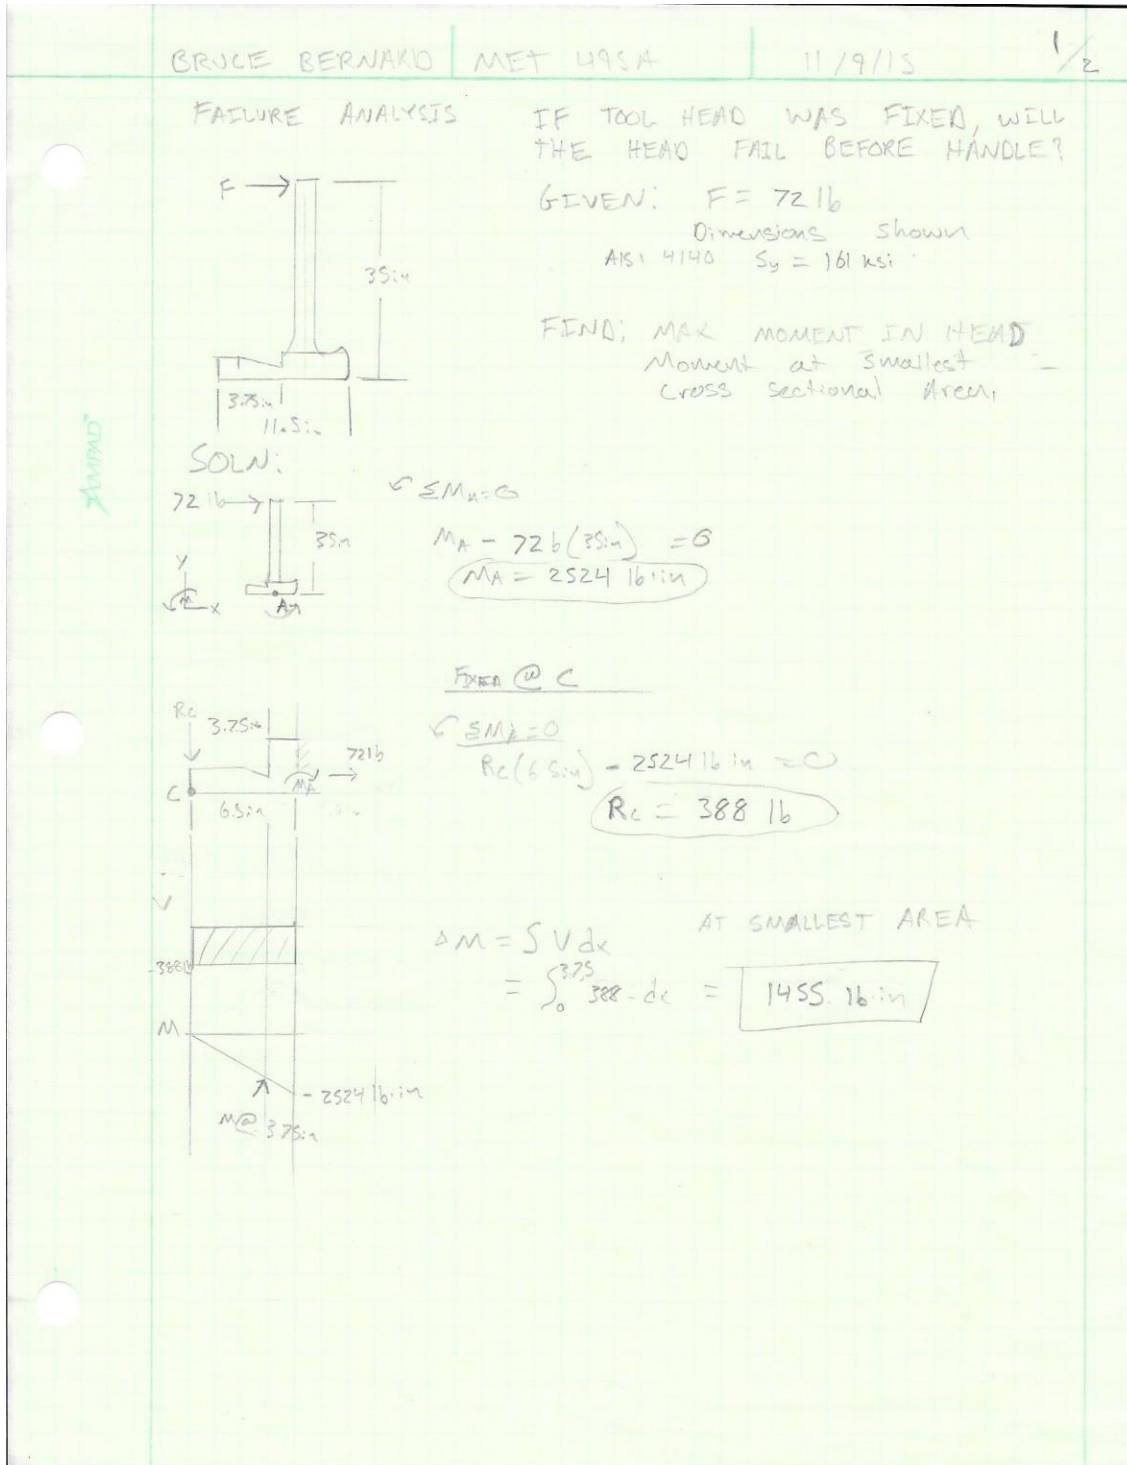 BRUCE BERNARD MET 495A 11/9/15 1/2
FAILURE ANALYSIS IF TOOL HEAD WAS FIXED, WILL
THE HEAD FAIL BEFORE HANDLE?
GIVEN: F = 72 lb
Dimensions shown
AISI 4140 Sy = 161 ksi
F
35in
FIND: MAX MOMENT IN HEAD
Moment at smallest
cross sectional Area.
3.75in
11.5in
AMPAD
SOLN:
72 lb
35in
Y
M
X
A
ΣMA=0
MA - 72lb(35in) = 0
MA = 2524 lb·in
FIXED @ C
Rc
3.75in
72lb
C
MA
6.5in
ΣMA=0
Rc(6.5in) - 2524 lb in = 0
Rc = 388 lb
V
-388lb
M
-2524 lb·in
M@ 3.75in
AT SMALLEST AREA
ΔM = ∫ V dx
= ∫₀^3.75 388 dx = 1455 lb·in